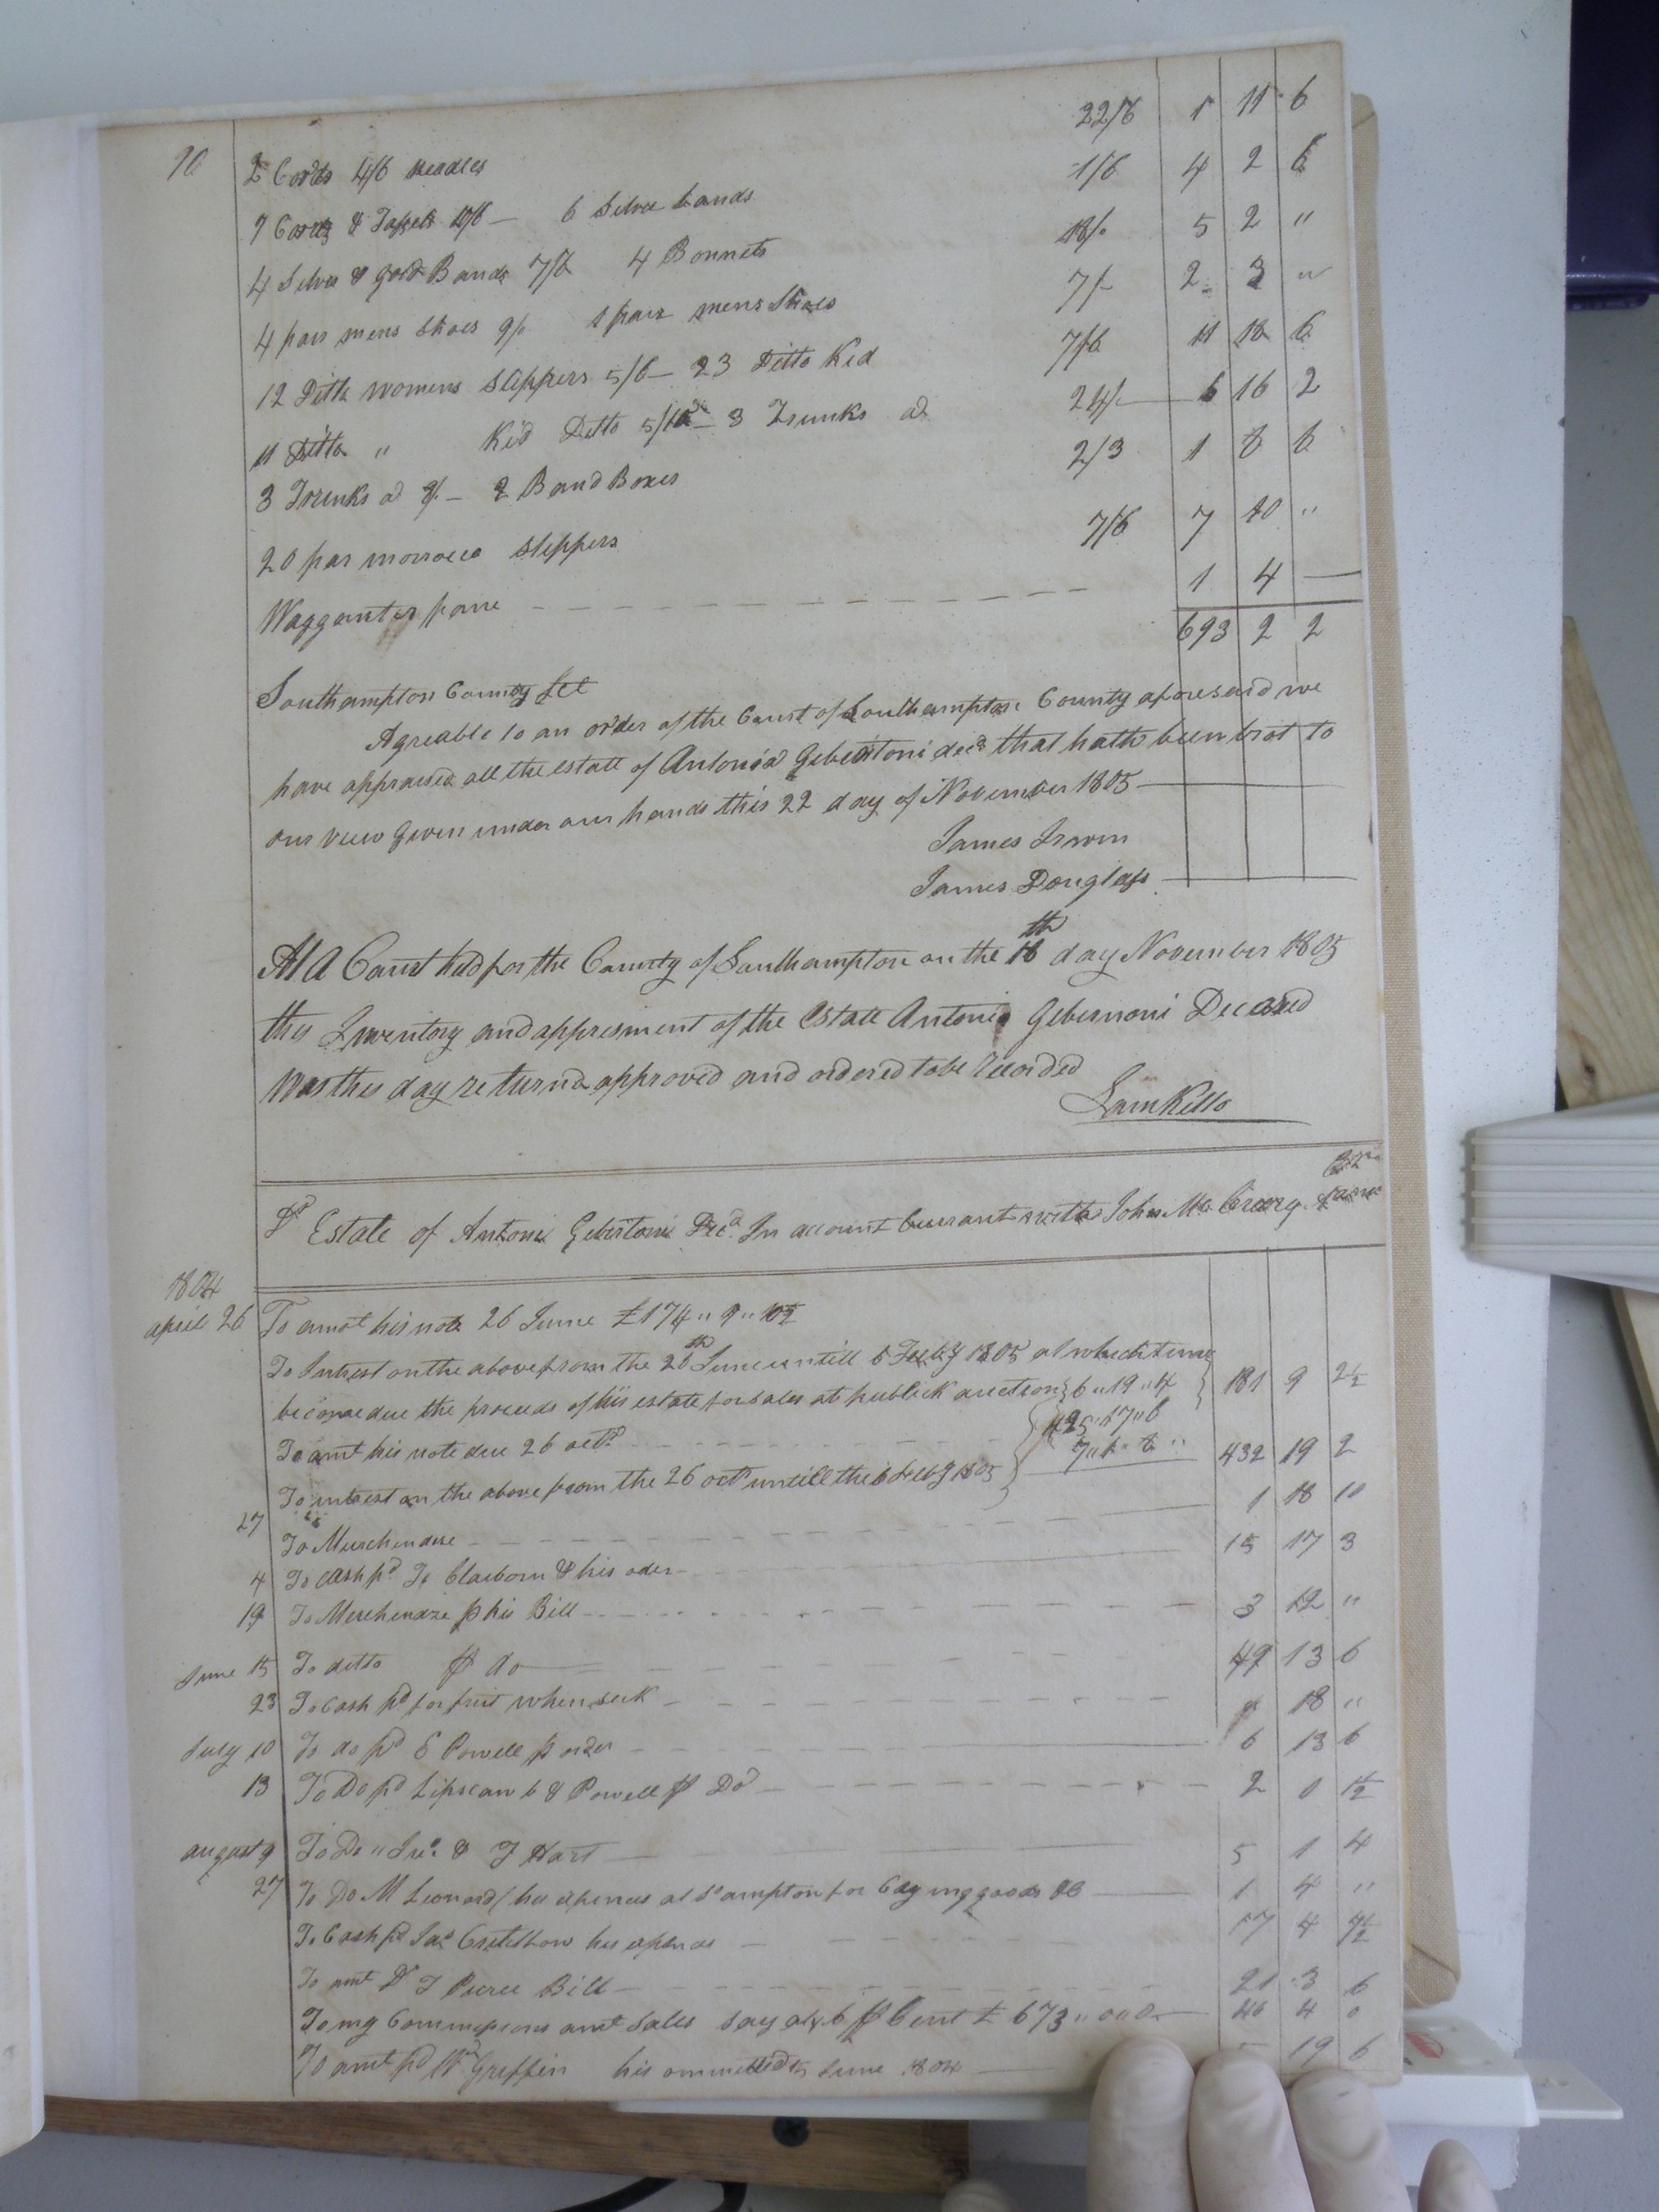 70
2 Cords 4/6 needles 22/6 1 11 6
7 Cords & Tassels 10/6 — 6 Silver bands 1/6 4 2 6
4 Silver & gold Bands 7/6 4 Bonnets 18/. 5 2 "
4 pair mens Shoes 9/. 1 pair mens Shoes 7/- 2 3 "
12 Ditto womens Slippers 5/6 — 23 Ditto Kid 7/6 11 18 6
11 Ditto " Kid Ditto 5/10 — 3 Trunks ad 24/- 6 16 2
3 Trunks ad — 2 Band Boxes 2/3 1 8 6
20 par morroco Slippers 7/6 7 10 "
Waggauter pane 1 4 —
693 2 2
Southampton County Sct
Agreable to an order of the Court of Southampton County aforesaid we
have appraised all the estate of Antonia Gebertoni decd that hath been brot to
our view Given under our hands this 22 day of November 1805
James Irwin
James Douglass
At A Court held for the County of Southampton on the 18th day November 1805
this Inventory and appresment of the Estate Antonio Gebernoni Deceased
was this day returnd approved and ordered to be Recorded
Sam Kello
Dr Estate of Antoni Gebertoni Decd In account Currant with John Mc Creary
1804
april 26 To amot his note 26 June £174 " 9 " 10½
To Intrest on the above from the 26th June untill 6 Feby 1805 at which time
become due the proceeds of his estate for sales at publick auction 6 " 19 " 4 181 9 2½
To amt his note due 26 octr 425 " 17 " 6
To intrest on the above from the 26 octr untill the 6 feby 1805 432 19 2
27 To Merchendise 1 18 10
4 To Cash pd To Claiborn & his oder 15 17 3
19 To Merchendze p his Bill 3 12 "
June 15 To ditto p do 49 13 6
23 To Cash pd for fruit when seek 18 "
July 10 To do pd E Powell p order 6 13 6
13 To Do pd Lipscamb & Powell p Do 2 0 1½
august 9 To Do " Jno. & J Hart 5 1 4
27 To Do M Leonard / his expences at So ampton for goods &c 1 4 "
To Cash pd Jas Critchlow his expences 17 4 4½
To amt Dr T Pierce Bill 21 3 6
To my Commissions amt Sales say at 6 p Cent £ 673 " 0 " 0 40 4 0
To amt pd Wm Griffin his ommitted 15 June 1804 19 6